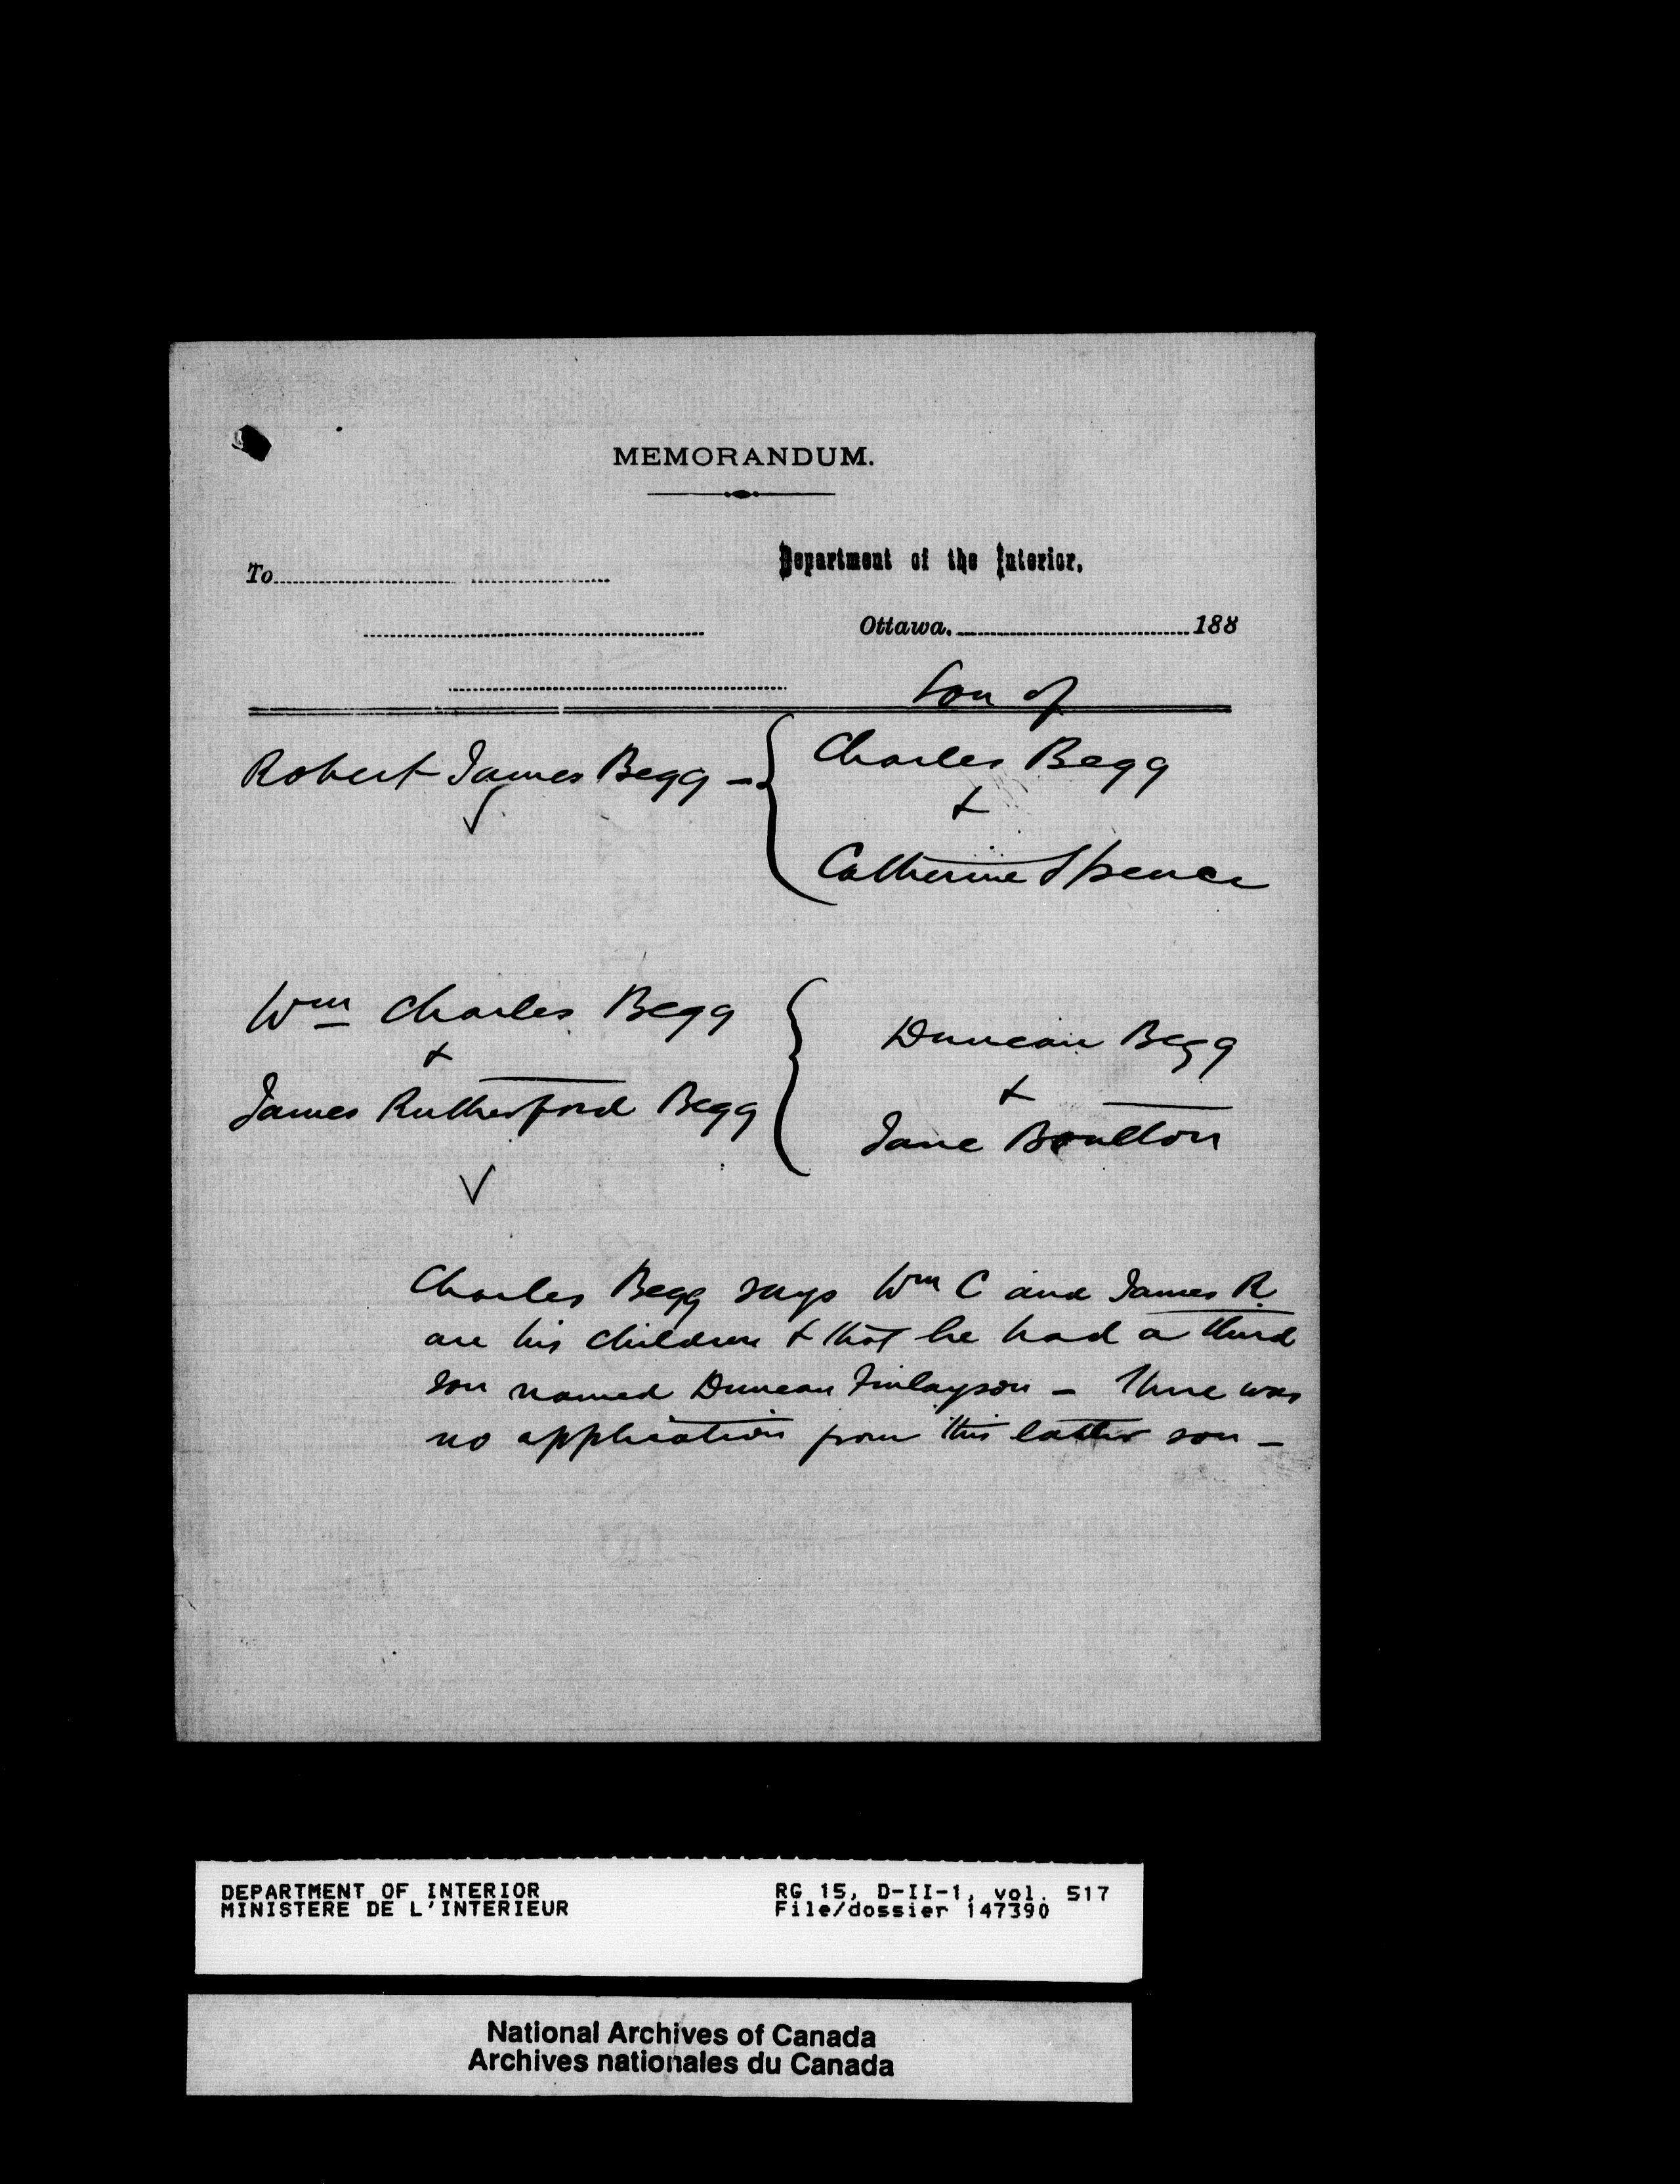 MEMORANDUM.
To
Department of the Interior,
Ottawa, 188
Son of
Robert James Begg - { Charles Begg
&
Catherine Spence
Wm Charles Begg
&
James Rutherford Begg
Duncan Begg
&
Jane Boulton
Charles Begg says Wm C and James R.
are his children & that he had a third
son named Duncan Finlayson - There was
no application from this latter son -
DEPARTMENT OF INTERIOR
MINISTERE DE L'INTERIEUR
RG 15, D-II-1, vol. 517
File/dossier 147390
National Archives of Canada
Archives nationales du Canada